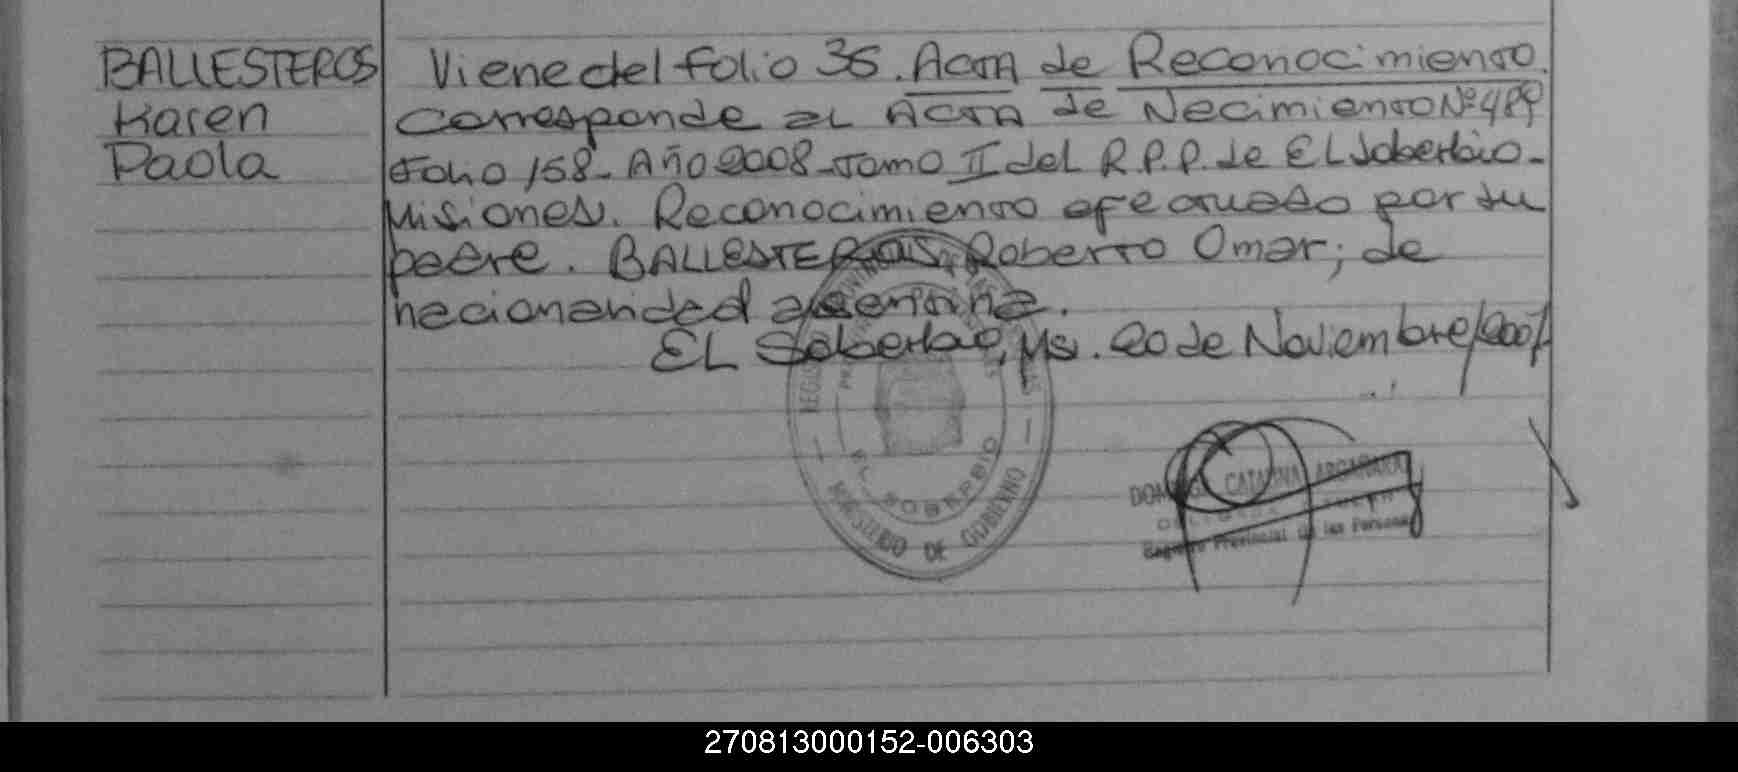 BALLESTEROS
Karen
Paola
Viene del Folio 36. Acta de Reconocimiento.
Corresponde al Acta de Nacimiento Nº 489
Folio 158- Año 2008-Tomo II del R.P.P. de El Soberbio-
Misiones. Reconocimiento efectuado por su
padre. BALLESTEROS, Roberto Omar; de
nacionalidad argentina.
El Soberbio, Ms. 20 de Noviembre/
EL SOBERBIO
MINISTERIO DE GOBIERNO
CATALINA
Registro Provincial de las Personas
270813000152-006303